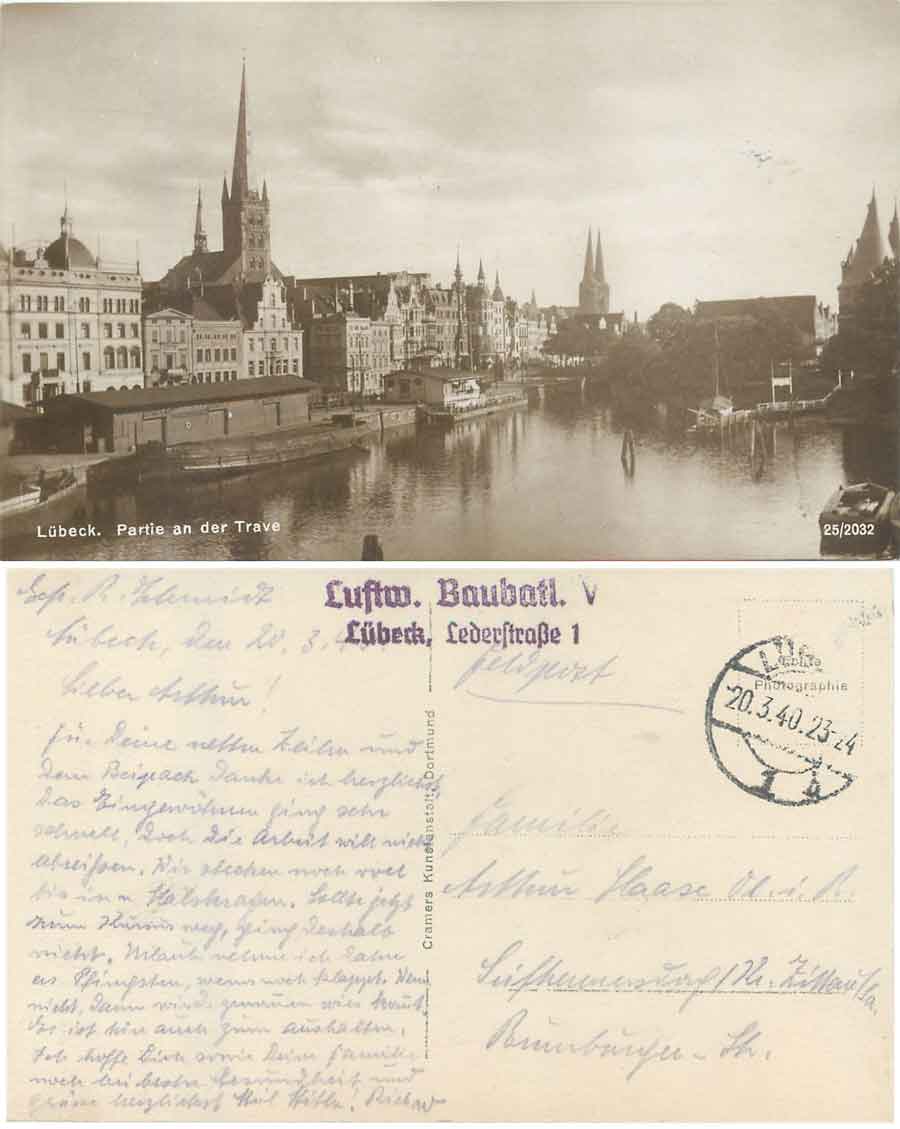 Lübeck. Partie an der Trave
25/2032
Gefr. R. Schmidt
Lübeck, den 20. 3. 4
Lieber Arthur!
Für Deine netten Zeilen und
dem Beipack danke ich herzlichst,
das Eingewöhnen ging sehr
schnell, doch die Arbeit will nicht
abreissen. Wir stecken noch voll
bis im Halskragen. Sollte jetzt
zum Kursus weg, ging deshalb
nicht. Urlaub nehme ich dann
es Pfingsten, wenns noch klappt. Wenn
nicht, dann wird
das ist hier auch zum aushalten.
Ich hoffe Dich sowie Deine Familie
noch bei bester Gesundheit und
grüsse herzlichst Heil Hitler! Richard
Luftw. Baubatl. V
Lübeck, Lederstraße 1
Feldpost
Echte
Photographie
LÜB
20.3.40.23-24
Cramers Kunstanstalt, Dortmund
Familie
Arthur Haase Ol. i. R.
Seifhennersdorf / Kr. Zittau/Sa.
Str.